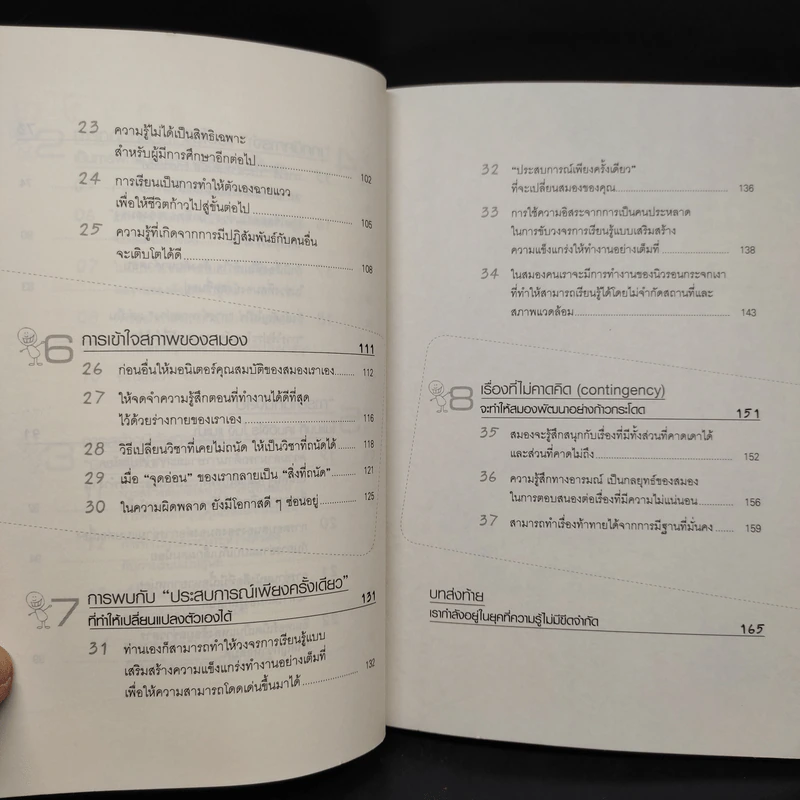 23 ความรู้ไม่ได้เป็นสิทธิเฉพาะ
สำหรับผู้มีการศึกษาอีกต่อไป 102
24 การเรียนเป็นการทำให้ตัวเองฉายแวว
เพื่อให้ชีวิตก้าวไปสู่ขั้นต่อไป 105
25 ความรู้ที่เกิดจากการมีปฏิสัมพันธ์กับคนอื่น
จะเติบโตได้ดี 108
6 การเข้าใจสภาพของสมอง 111
26 ก่อนอื่นให้มอนิเตอร์คุณสมบัติของสมองเราเอง 112
27 ให้จดจำความรู้สึกตอนที่ทำงานได้ดีที่สุด
ไว้ด้วยร่างกายของเราเอง 116
28 วิธีเปลี่ยนวิชาที่เคยไม่ถนัด ให้เป็นวิชาที่ถนัดได้ 118
29 เมื่อ “จุดอ่อน” ของเรากลายเป็น “สิ่งที่ถนัด” 121
30 ในความผิดพลาด ยังมีโอกาสดี ๆ ซ่อนอยู่ 125
7 การพบกับ “ประสบการณ์เพียงครั้งเดียว” 131
ที่ทำให้เปลี่ยนแปลงตัวเองได้
31 ท่านเองก็สามารถทำให้วงจรการเรียนรู้แบบ
เสริมสร้างความแข็งแกร่งทำงานอย่างเต็มที่
เพื่อให้ความสามารถโดดเด่นขึ้นมาได้ 132
32 “ประสบการณ์เพียงครั้งเดียว”
ที่จะเปลี่ยนสมองของคุณ 136
33 การใช้ความอิสระจากการเป็นคนประหลาด
ในการขับวงจรการเรียนรู้แบบเสริมสร้าง
ความแข็งแกร่งให้ทำงานอย่างเต็มที่ 138
34 ในสมองคนเราจะมีการทำงานของนิวรอนกระจกเงา
ที่ทำให้สามารถเรียนรู้ได้โดยไม่จำกัดสถานที่และ
สภาพแวดล้อม 143
8 เรื่องที่ไม่คาดคิด (contingency)
จะทำให้สมองพัฒนาอย่างก้าวกระโดด 151
35 สมองจะรู้สึกสนุกกับเรื่องที่มีทั้งส่วนที่คาดเดาได้
และส่วนที่คาดไม่ถึง 152
36 ความรู้สึกทางอารมณ์ เป็นกลยุทธ์ของสมอง
ในการตอบสนองต่อเรื่องที่มีความไม่แน่นอน 156
37 สามารถทำเรื่องท้าทายได้จากการมีฐานที่มั่นคง 159
บทส่งท้าย
เรากำลังอยู่ในยุคที่ความรู้ไม่มีขีดจำกัด 165